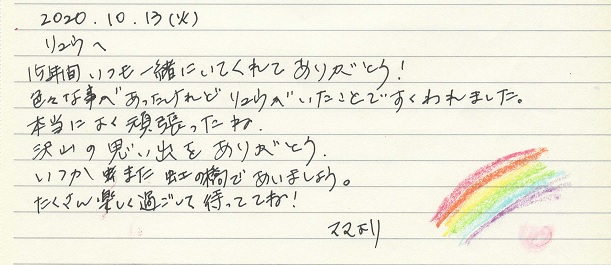 2020.10.13(火)
リュウへ
15年間いつも一緒にいてくれてありがとう!
色々な事があったけれどリュウがいたことですくわれました。
本当によく頑張ったね.
沢山の思い出をありがとう.
いつかまた虹の橋であいましょう。
たくさん楽しく過ごして待っててね!
ママより